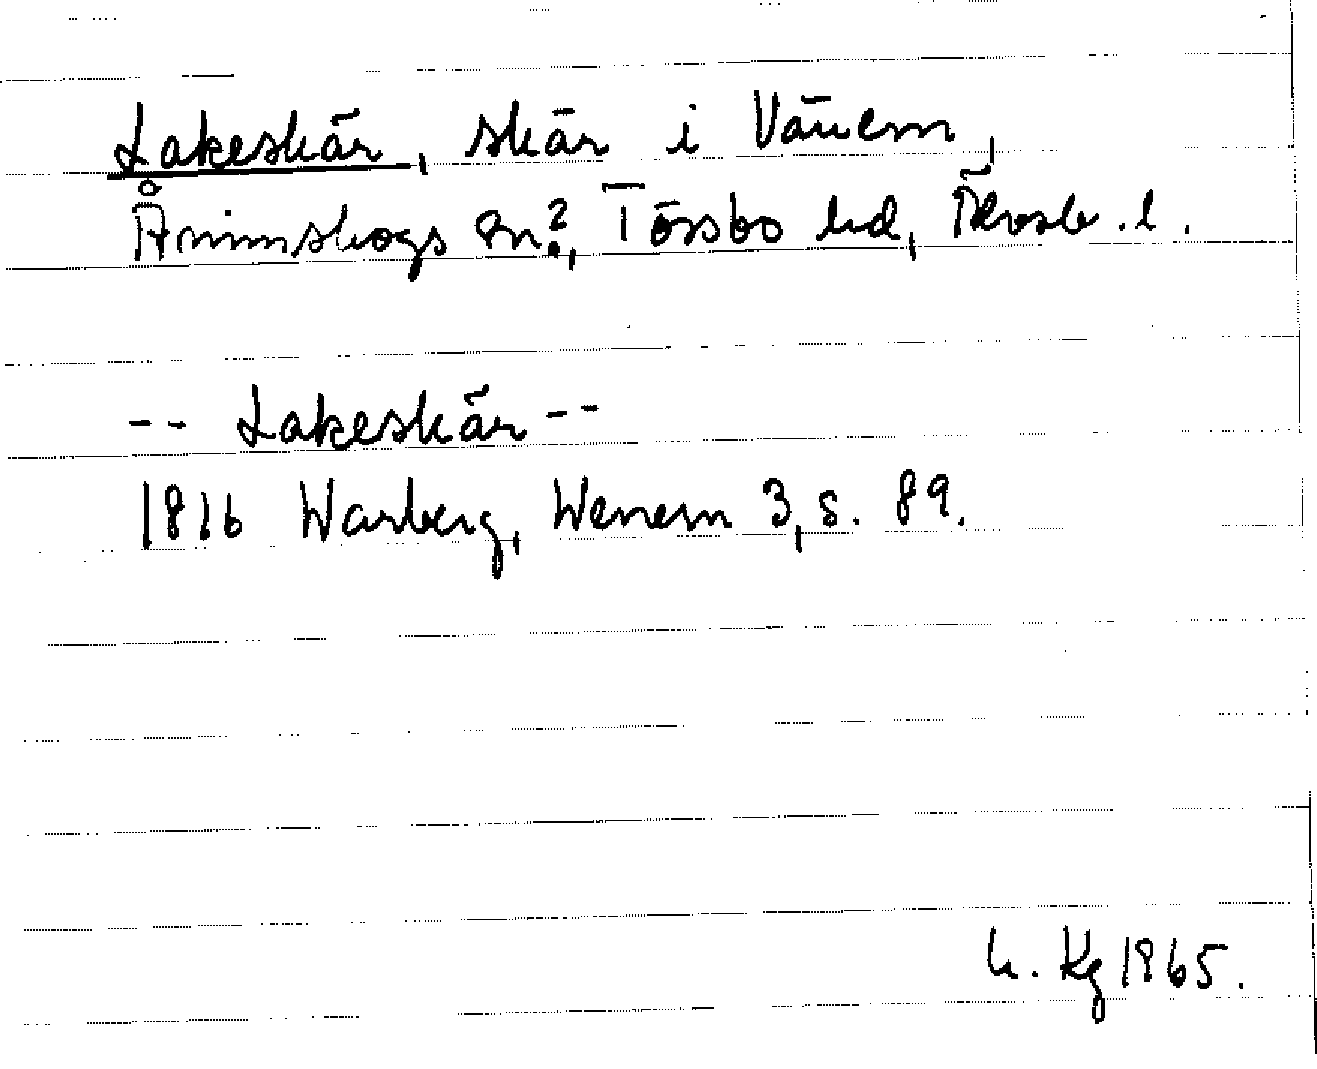 Lakeskär, skär i Vänern,
Ånimskogs sn?, Tössbo hd, Älvsb. l.
-- Lakeskär --
1816 Warberg, Wenern 3, s. 89.
Kg 1965.